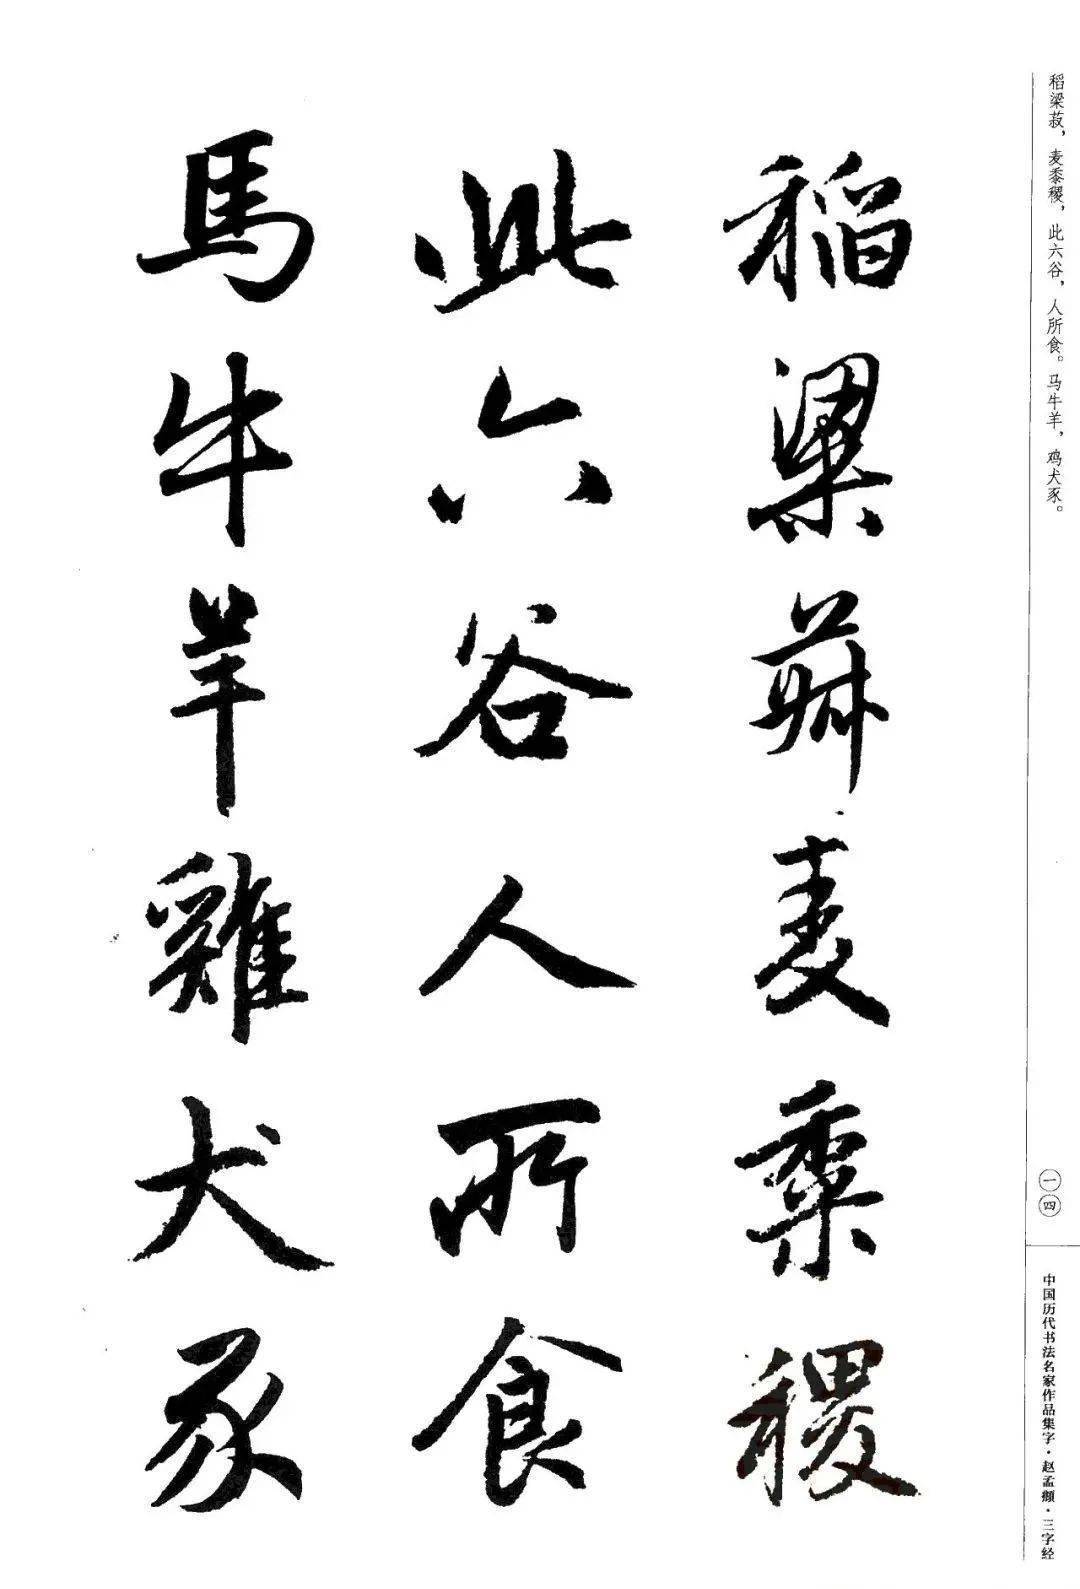 稻梁菽，麦黍稷，此六谷，人所食。马牛羊，鸡犬豕。
稻梁菽麦黍稷
此六谷人所食
馬牛羊雞犬豕
一四
中国历代书法名家作品集字·赵孟頫·三字经